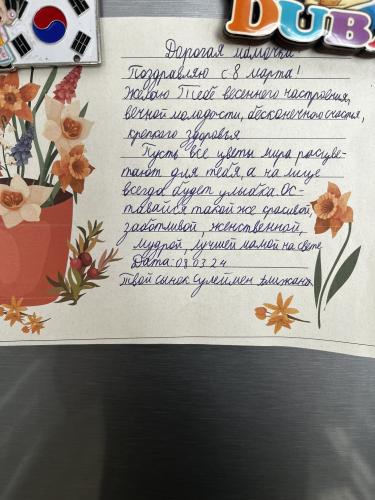 DUBA
Дорогая мамочка
Поздравляю с 8 марта!
Желаю Тебе весеннего настроения,
вечной молодости, бесконечного счастья,
крепкого здоровья
Пусть все цветы мира расцве-
тают для тебя, а на лице
всегда будет улыбка. Ос-
тавайся такой же красивой,
заботливой, женственной,
мудрой, лучшей мамой на свете
Дата: 08.03.24
Твой сынок Сулеймен